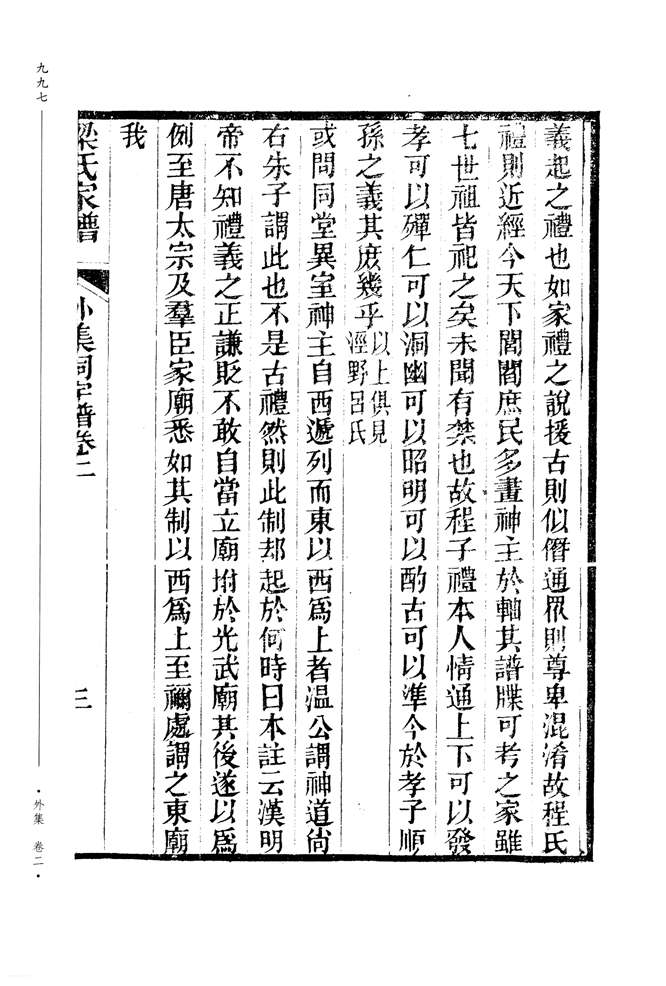 義起之禮也如家禮之說援古則似僭通眾則尊卑混淆故程氏
禮則近經今天下閭閻庶民多畫神主於軸其譜牒可考之家雖
七世祖皆祀之矣未聞有禁也故程子禮本人情通上下可以發
孝可以殫仁可以洞幽可以昭明可以酌古可以準今於孝子順
孫之義其庶幾乎以上俱見涇野呂氏
或問同堂異室神主自西遞列而東以西爲上者温公謂神道尙
右朱子謂此也不是古禮然則此制却起於何時曰本註云漢明
帝不知禮義之正謙貶不敢自當立廟祔於光武廟其後遂以爲
例至唐太宗及羣臣家廟悉如其制以西爲上至禰處謂之東廟
我
梁氏家譜
外集祠宇譜卷二
三
九九七
·外集 卷二·